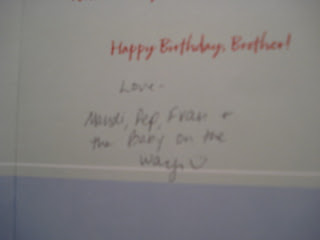 Happy Birthday, Brother!
Love -
Mandi, Pep, Fran +
the Baby on the
way